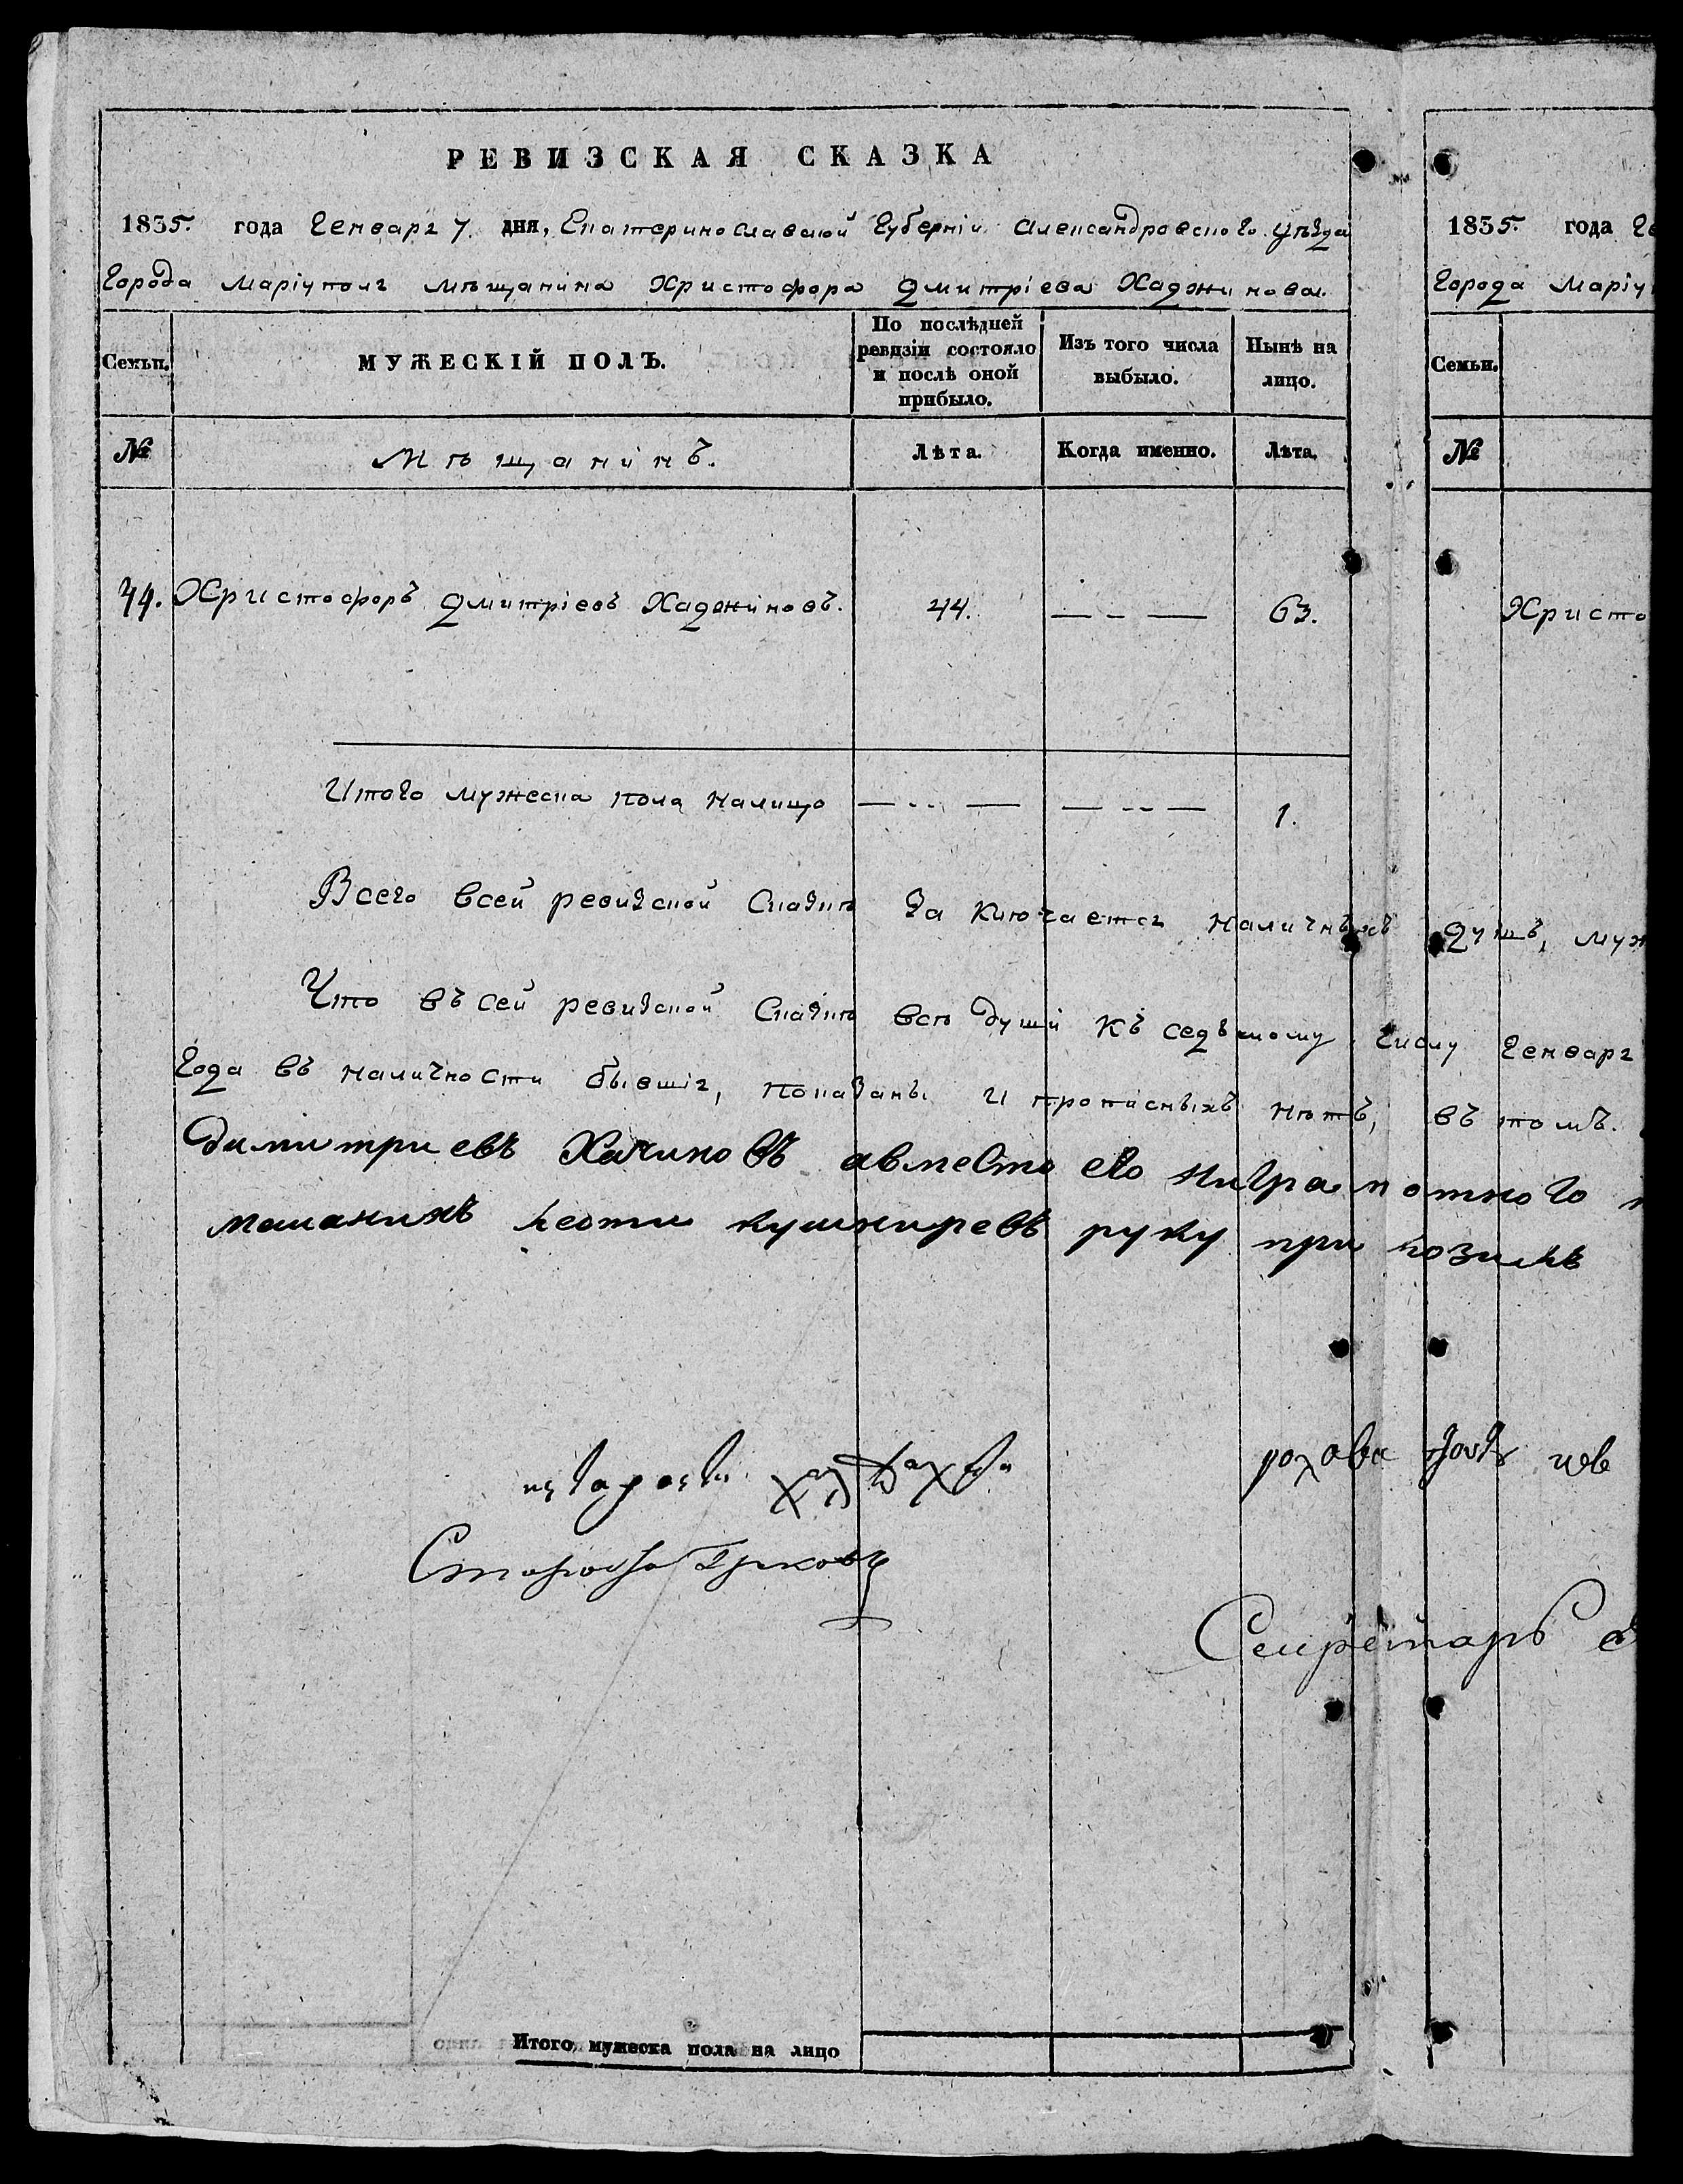 РЕВИЗСКАЯ СКАЗКА
1835. года Генваря 7. дня, Екатеринославской Губерніи Александровского уѣзда
Города Маріуполя мѣщанина Христофора Дмитріева Хаджинова.
Семьи. МУЖЕСКІЙ ПОЛЪ. По послѣдней ревизіи состояло и послѣ оной прибыло. Изъ того числа выбыло. Нынѣ на лицо.
№ Мѣщанинъ. Лѣта. Когда именно. Лѣта.
74. Христофоръ Дмитріевъ Хаджиновъ. 44. — - — 63.
Итого мужеска пола налицо — - - — — - - — 1.
Всего всей ревизской сказке заключается наличныхъ душъ, муж
Что въ сей ревизской сказке все души къ седьмому числу Генваря
Года въ наличности бывшія, показаны и прописныхъ нетъ, въ томъ.
Димитриевъ Хачиновъ авместо его ниграмотного
мешанинъ кушниревъ руку при
Староста Грековъ
Секретарь
Итого мужеска пола на лицо
1835. года Ге
Города Маріу
Семьи.
№
Христо